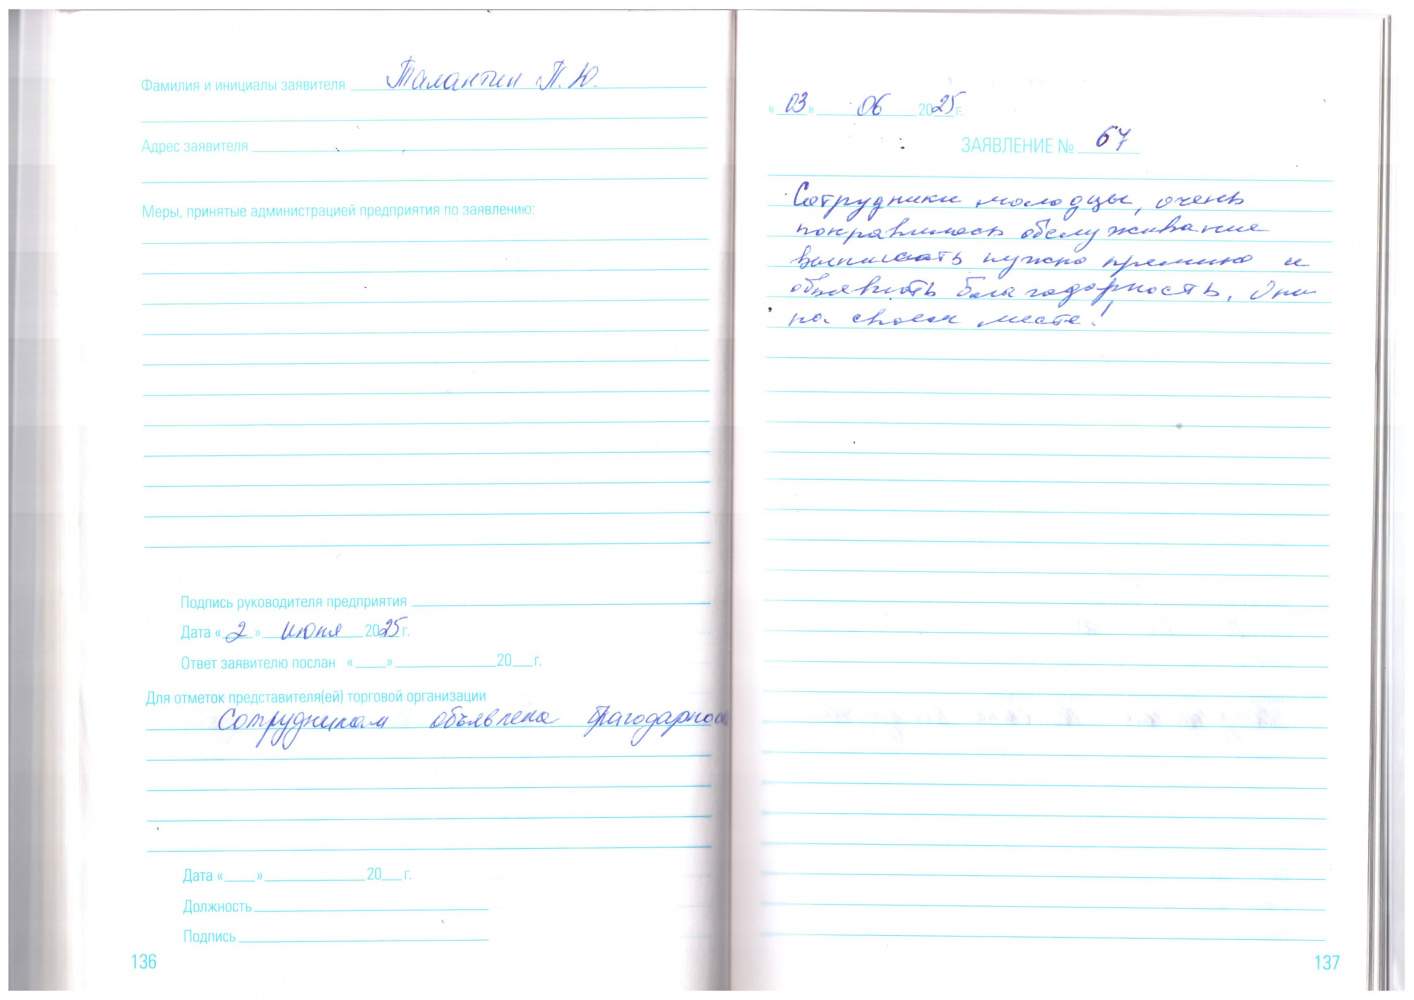 Фамилия и инициалы заявителя Талантин П.Ю.
Адрес заявителя
Меры, принятые администрацией предприятия по заявлению:
Подпись руководителя предприятия
Дата « 2 » июня 2025 г.
Ответ заявителю послан « » 20 г.
Для отметок представителя(ей) торговой организации
Сотрудникам объявлена благодарнос
Дата « » 20 г.
Должность
Подпись
136
« 03 » 06 2025 г.
ЗАЯВЛЕНИЕ № 67
Сотрудники молодцы, очень
понравилось обслуживание
выписать нужно премию и
объявить благодарность. Они
на своем месте!
137